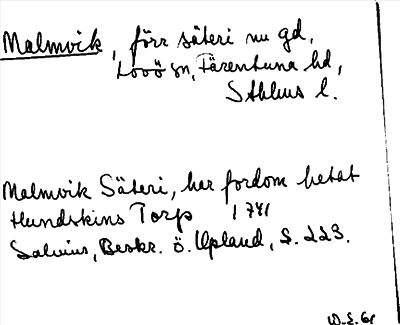 Malmvik, förr säteri nu gd,
Lovö sn, Färentuna hd,
Sthlms l.
Malmvik Säteri, har fordom hetat
Hundskins Torp 1741
Salvius, Beskr. ö. Upland, S. 223.
W.E. 61